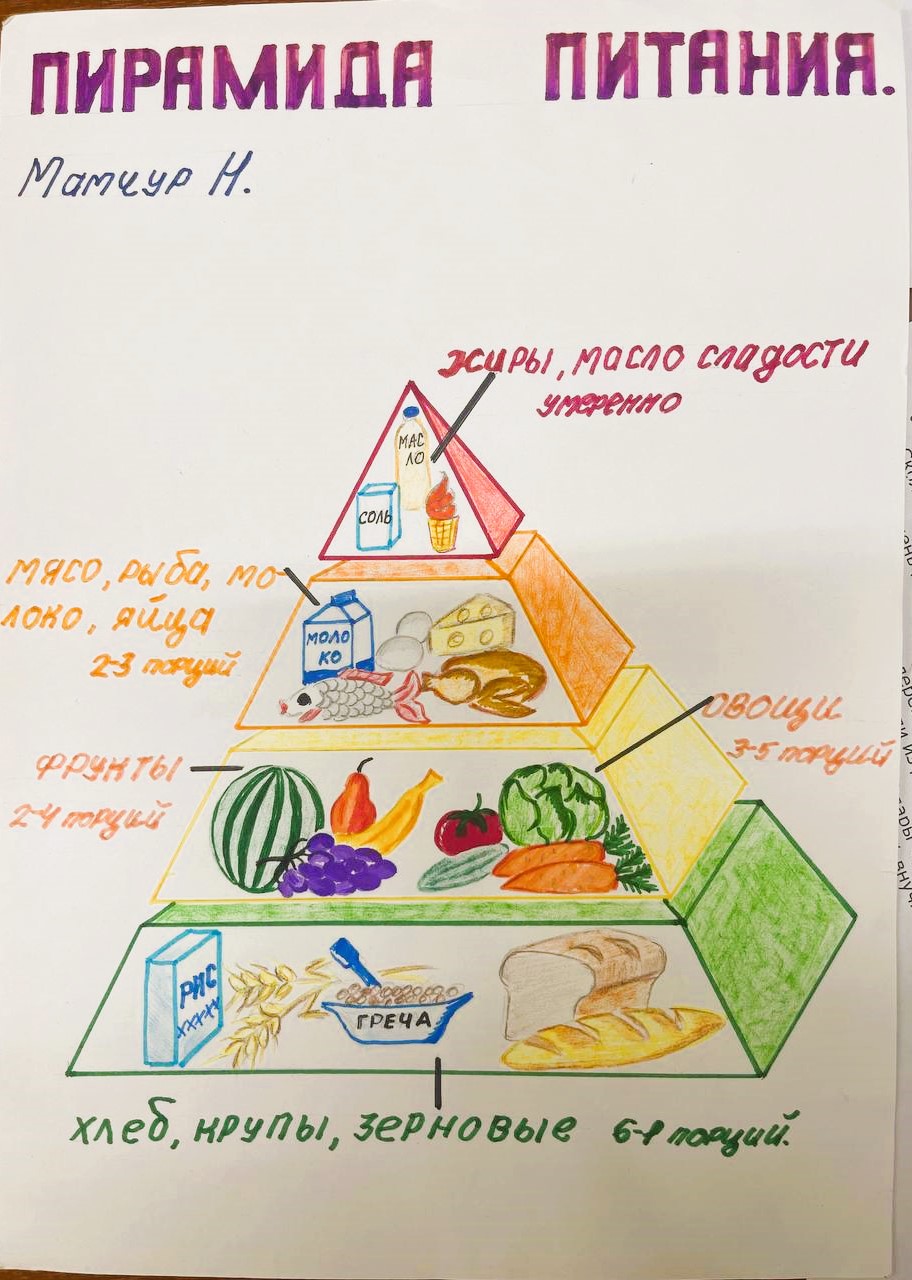 ПИРАМИДА ПИТАНИЯ.
Матчур Н.
жиры, масло сладости
умеренно
МАС
ЛО
СОЛЬ
мясо, рыба, мо-
локо, яйца
2-3 порций
МОЛО
КО
овощи
3-5 порций
фрукты
2-4 порций
РИС
ХХХХХ
ГРЕЧА
хлеб, крупы, зерновые порций.